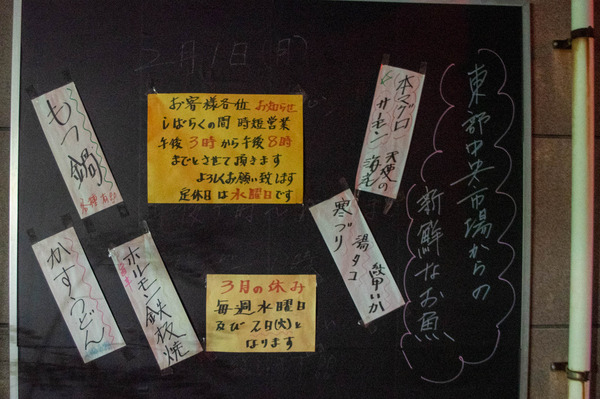 2月1日(月)
お客様各位 お知らせ
しばらくの間 時短営業
午後3時から午後8時
までとさせて頂きます
よろしくお願い致します
定休日は水曜日です
もつ鍋
かすうどん
ホルモン鉄板焼
3月の休み
毎週水曜日
及び2日(火)と
なります
本マグロ
サーモン 天使の海老
寒ブリ
湯タコ
紋甲いか
東部中央市場からの
新鮮なお魚